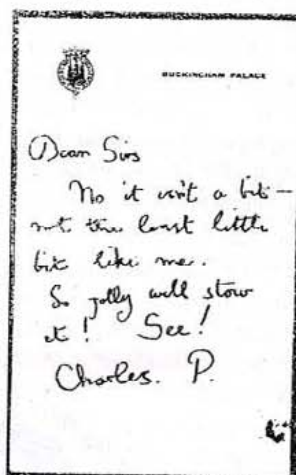 BUCKINGHAM PALACE
Dear Sirs
No it isn't a bit –
not the least little
bit like me.
So jolly well stow
it! See!
Charles. P.